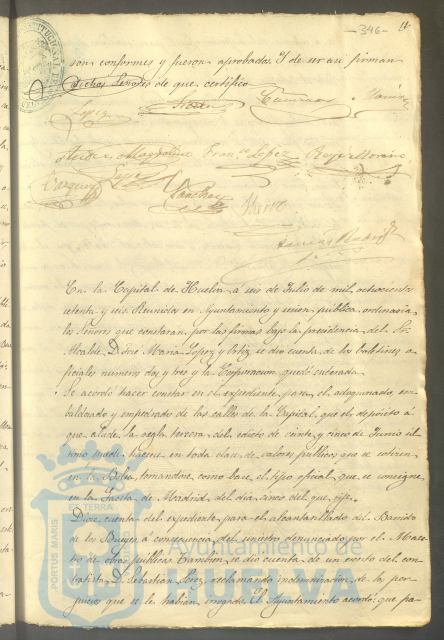 -346-
son conformes y fueron aprobadas. Y de ser asi firman
dichos Señores de que certifico
Lopez
Magdalena Franco Lopez
Vazquez
Sanchez
En la Capital de Huelva á seis de Julio de mil ochocientos
setenta y seis Reunidos en Ayuntamiento y sesion publica ordinaria
los Señores que constaran por las firmas bajo la presidencia del Sr.
Alcalde D. José Maria Lopez y Ortiz se dio cuenta de los boletines o
ficiales numeros dos y tres y la Corporacion quedó enterada
Se acordó hacer constar en el expediente para el adoquinado, em
baldosado y empedrado de las calles de la Capital, que el depósito á
que alude la regla tercera del edicto de veinte y cinco de Junio úl
timo puede hacerse en toda clase de valores publicos que se coticen
en la Bolsa, tomandose como base el tipo oficial que se consigne
en la Gaceta de Madrid del dia cinco del que rije.
Diose cuenta del expediente para el alcantarillado del Barrido
de los Bueyes á consecuencia del siniestro denunciado por el Maes
tro de obras publicas. Tambien se dio cuenta de un escrito del con
tratista D. Sebastian Perez reclamando indemnizacion de los per
juicios que se le habian irrogado. El Ayuntamiento acordó: que pa
PORTUS MARIS
ET TERRÆ
Ayuntamiento de
HUELVA